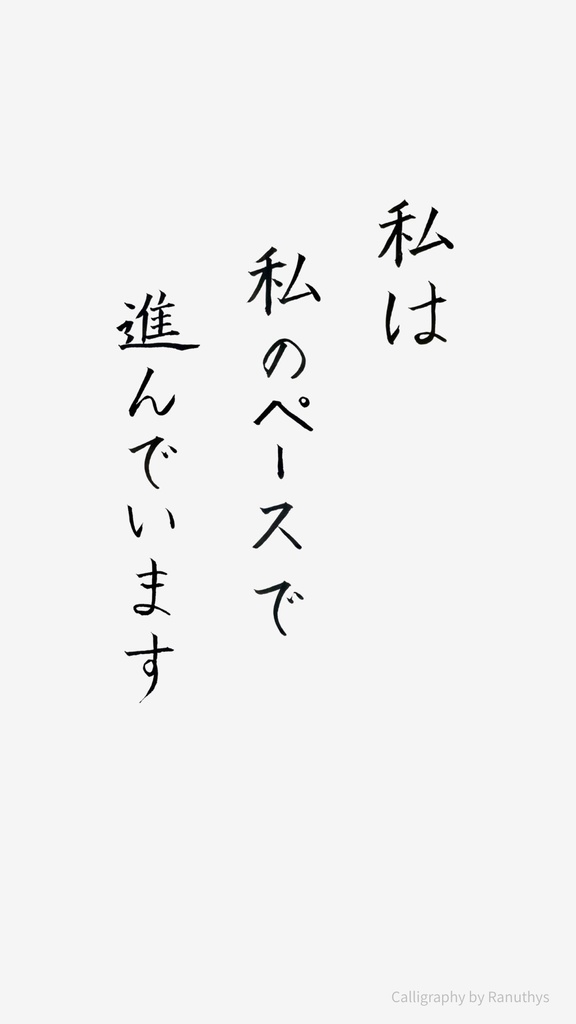 私は
私のペースで
進んでいます
Calligraphy by Ranuthys